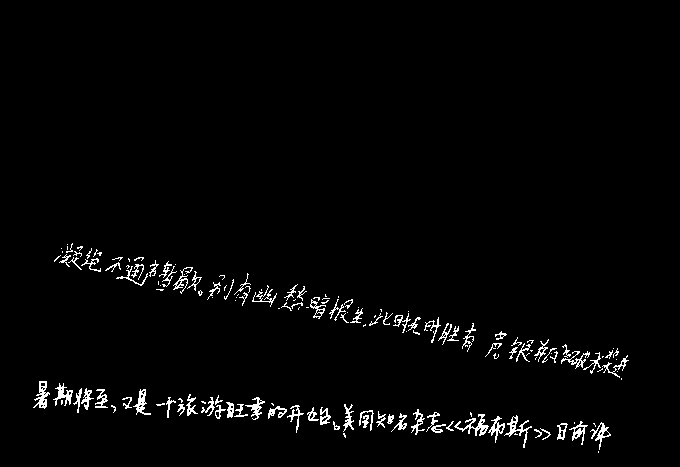 凝绝不通声暂歇。别有幽愁暗恨生,此时无声胜有声。银瓶乍破水浆迸
暑期将至,又是一个旅游旺季的开始。美国知名杂志《福布斯》日前评